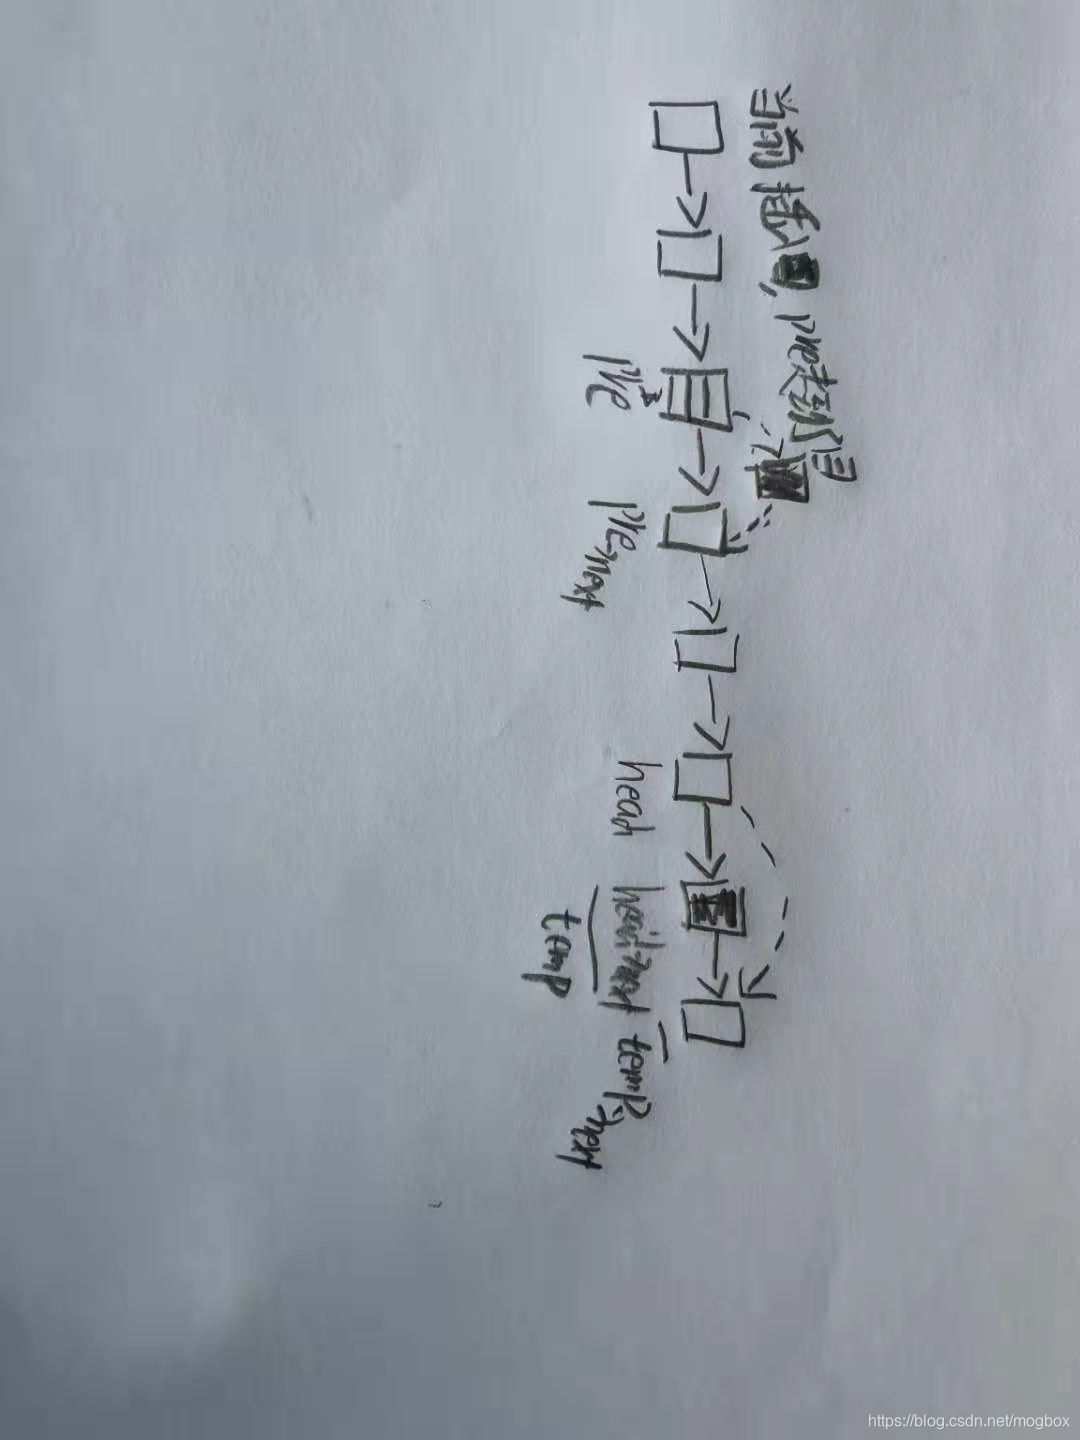 当前插入■,pre走到目
pre
pre->next
head
head->next
temp
temp->next
https://blog.csdn.net/mogbox